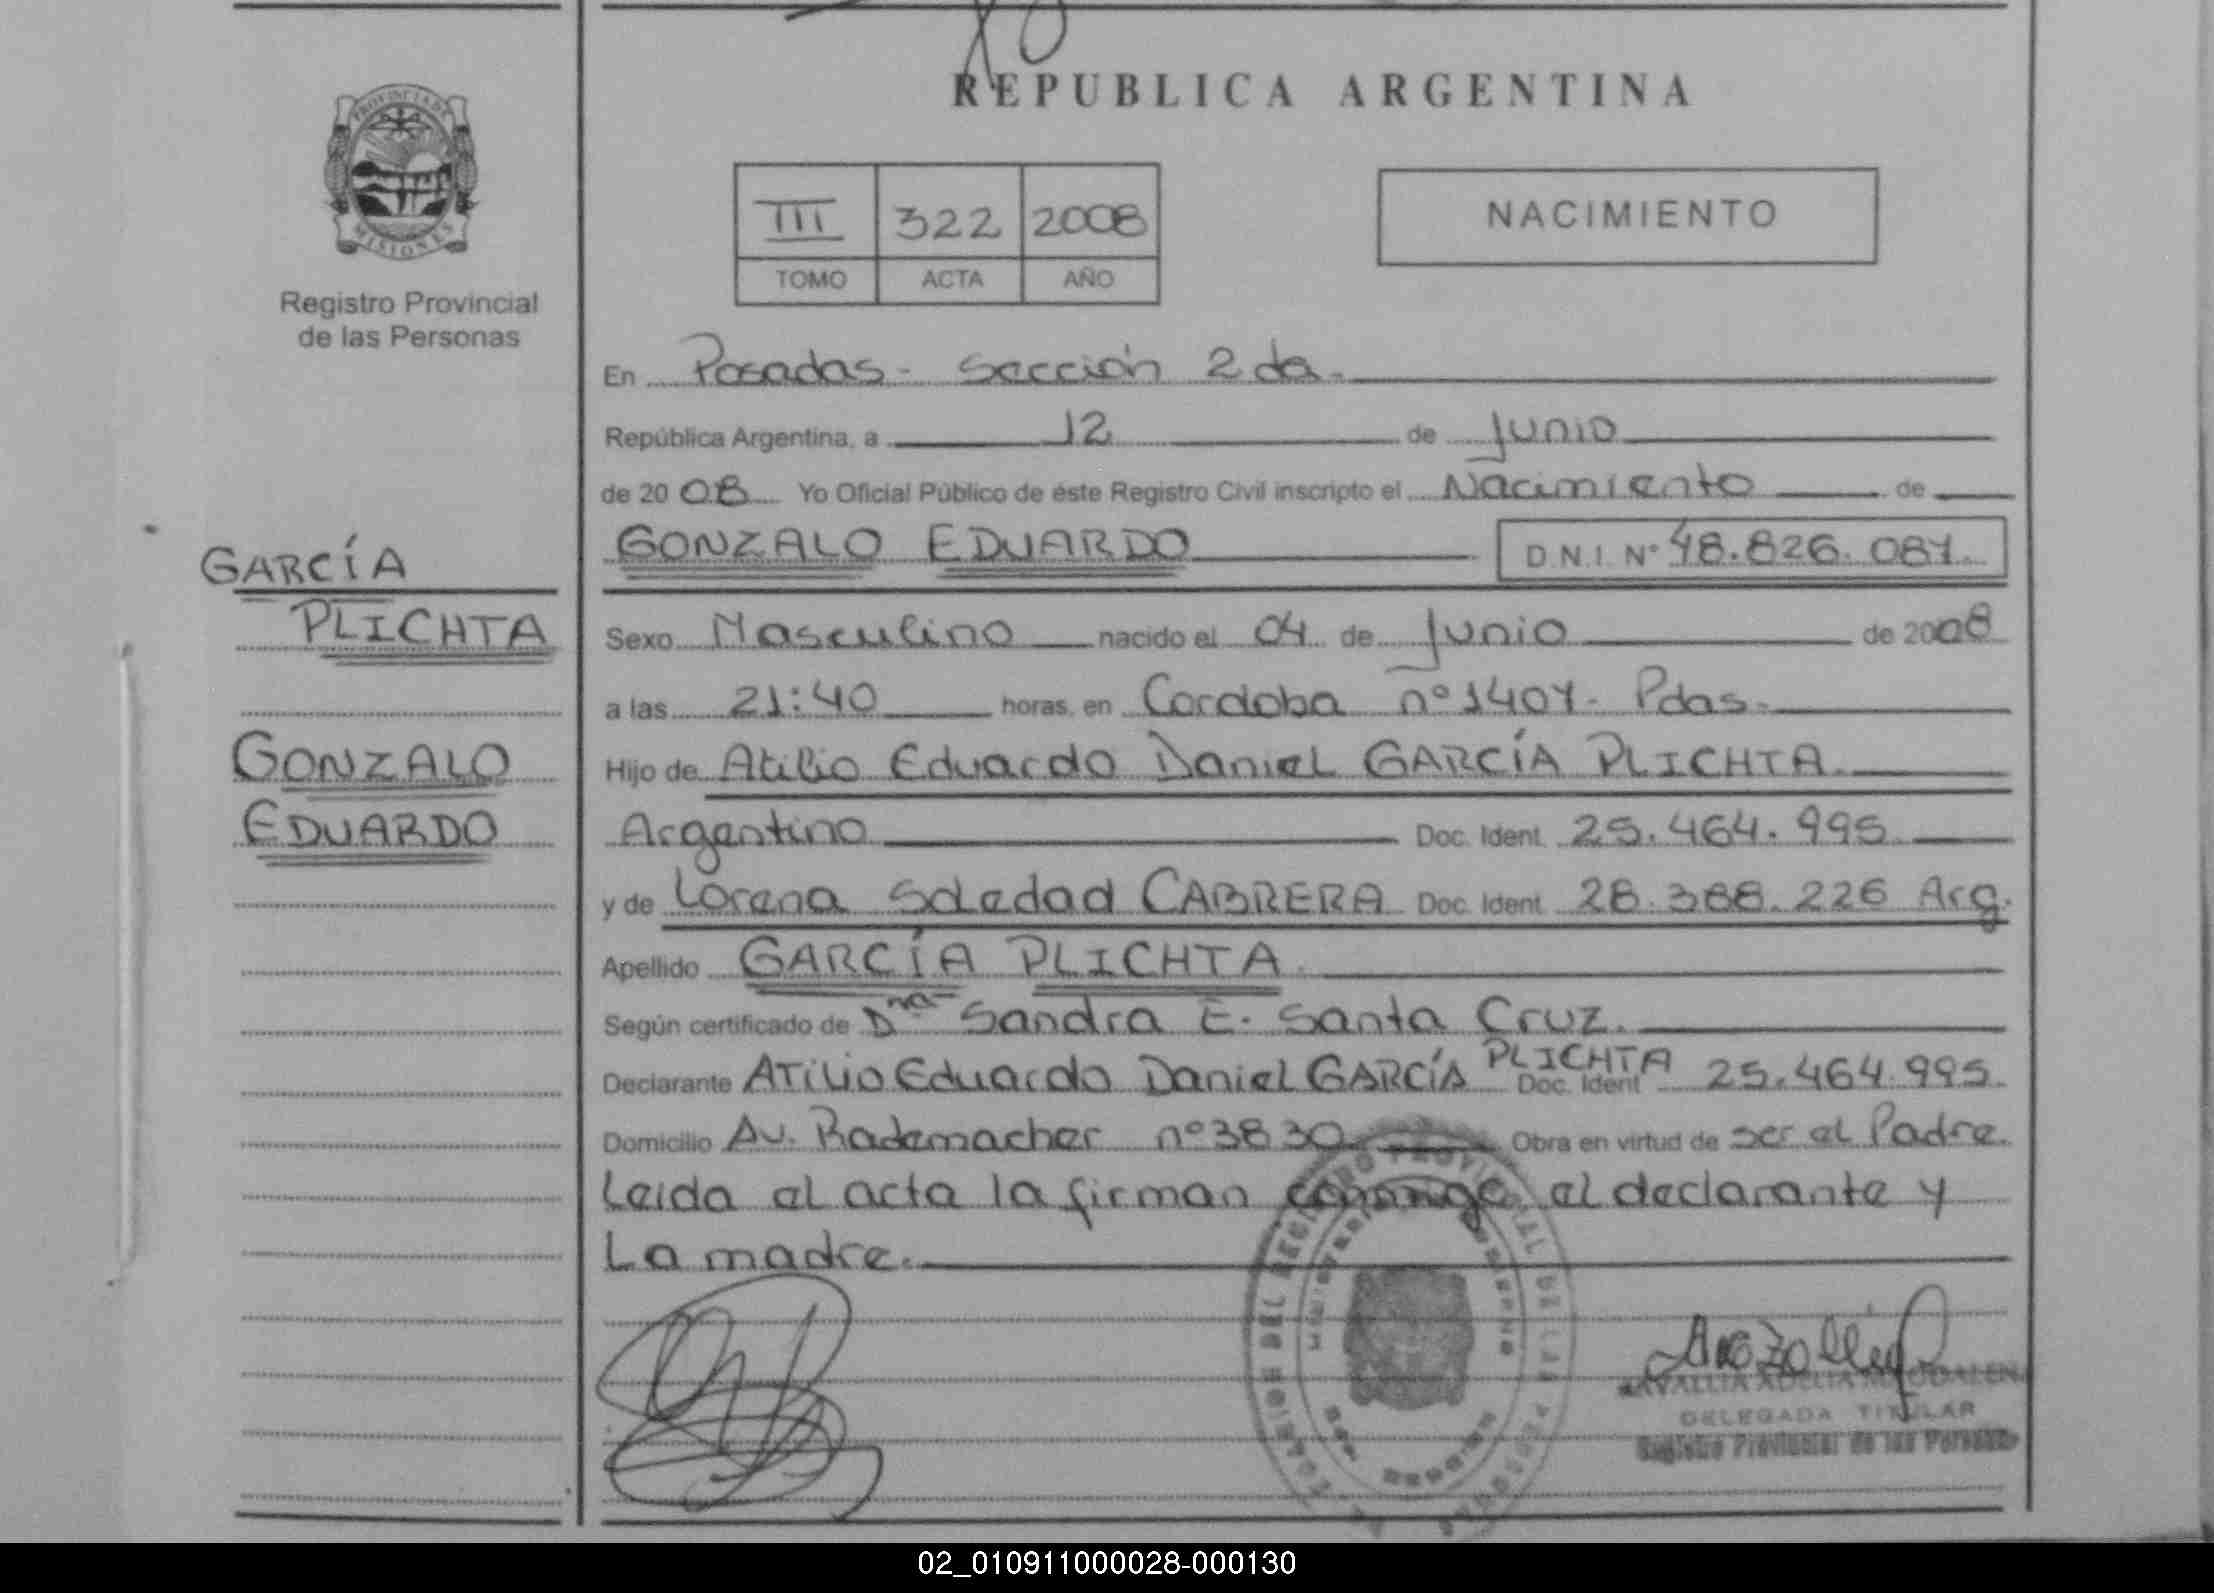 REPUBLICA ARGENTINA
PROVINCIA DE
MISIONES
Registro Provincial
de las Personas
III 322 2008
TOMO ACTA AÑO
NACIMIENTO
En Posadas - Sección 2da.
República Argentina, a 12 de Junio
de 2008 Yo Oficial Público de éste Registro Civil inscripto el Nacimiento de
GARCÍA
PLICHTA
GONZALO
EDUARDO
GONZALO EDUARDO D.N.I. Nº 48.826.087
Sexo Masculino nacido el 04 de Junio de 2008
a las 21:40 horas, en Cordoba nº 1407- Pdas.
Hijo de Atilio Eduardo Daniel GARCÍA PLICHTA.
Argentino Doc. Ident. 25.464.995
y de Lorena Soledad CABRERA Doc. Ident. 28.388.226 Arg.
Apellido GARCÍA PLICHTA.
Según certificado de Dña Sandra E. Santa Cruz.
Declarante Atilio Eduardo Daniel GARCÍA PLICHTA Doc. Ident 25.464.995
Domicilio Av. Rademacher nº 3830 Obra en virtud de ser el Padre.
Leida el acta la firman el declarante y
La madre.
DEL REGISTRO PROVINCIAL DE LAS PERSONAS
ADELIA MAGDALENA
DELEGADA TITULAR
Registro Provincial de las Personas
02_010911000028-000130